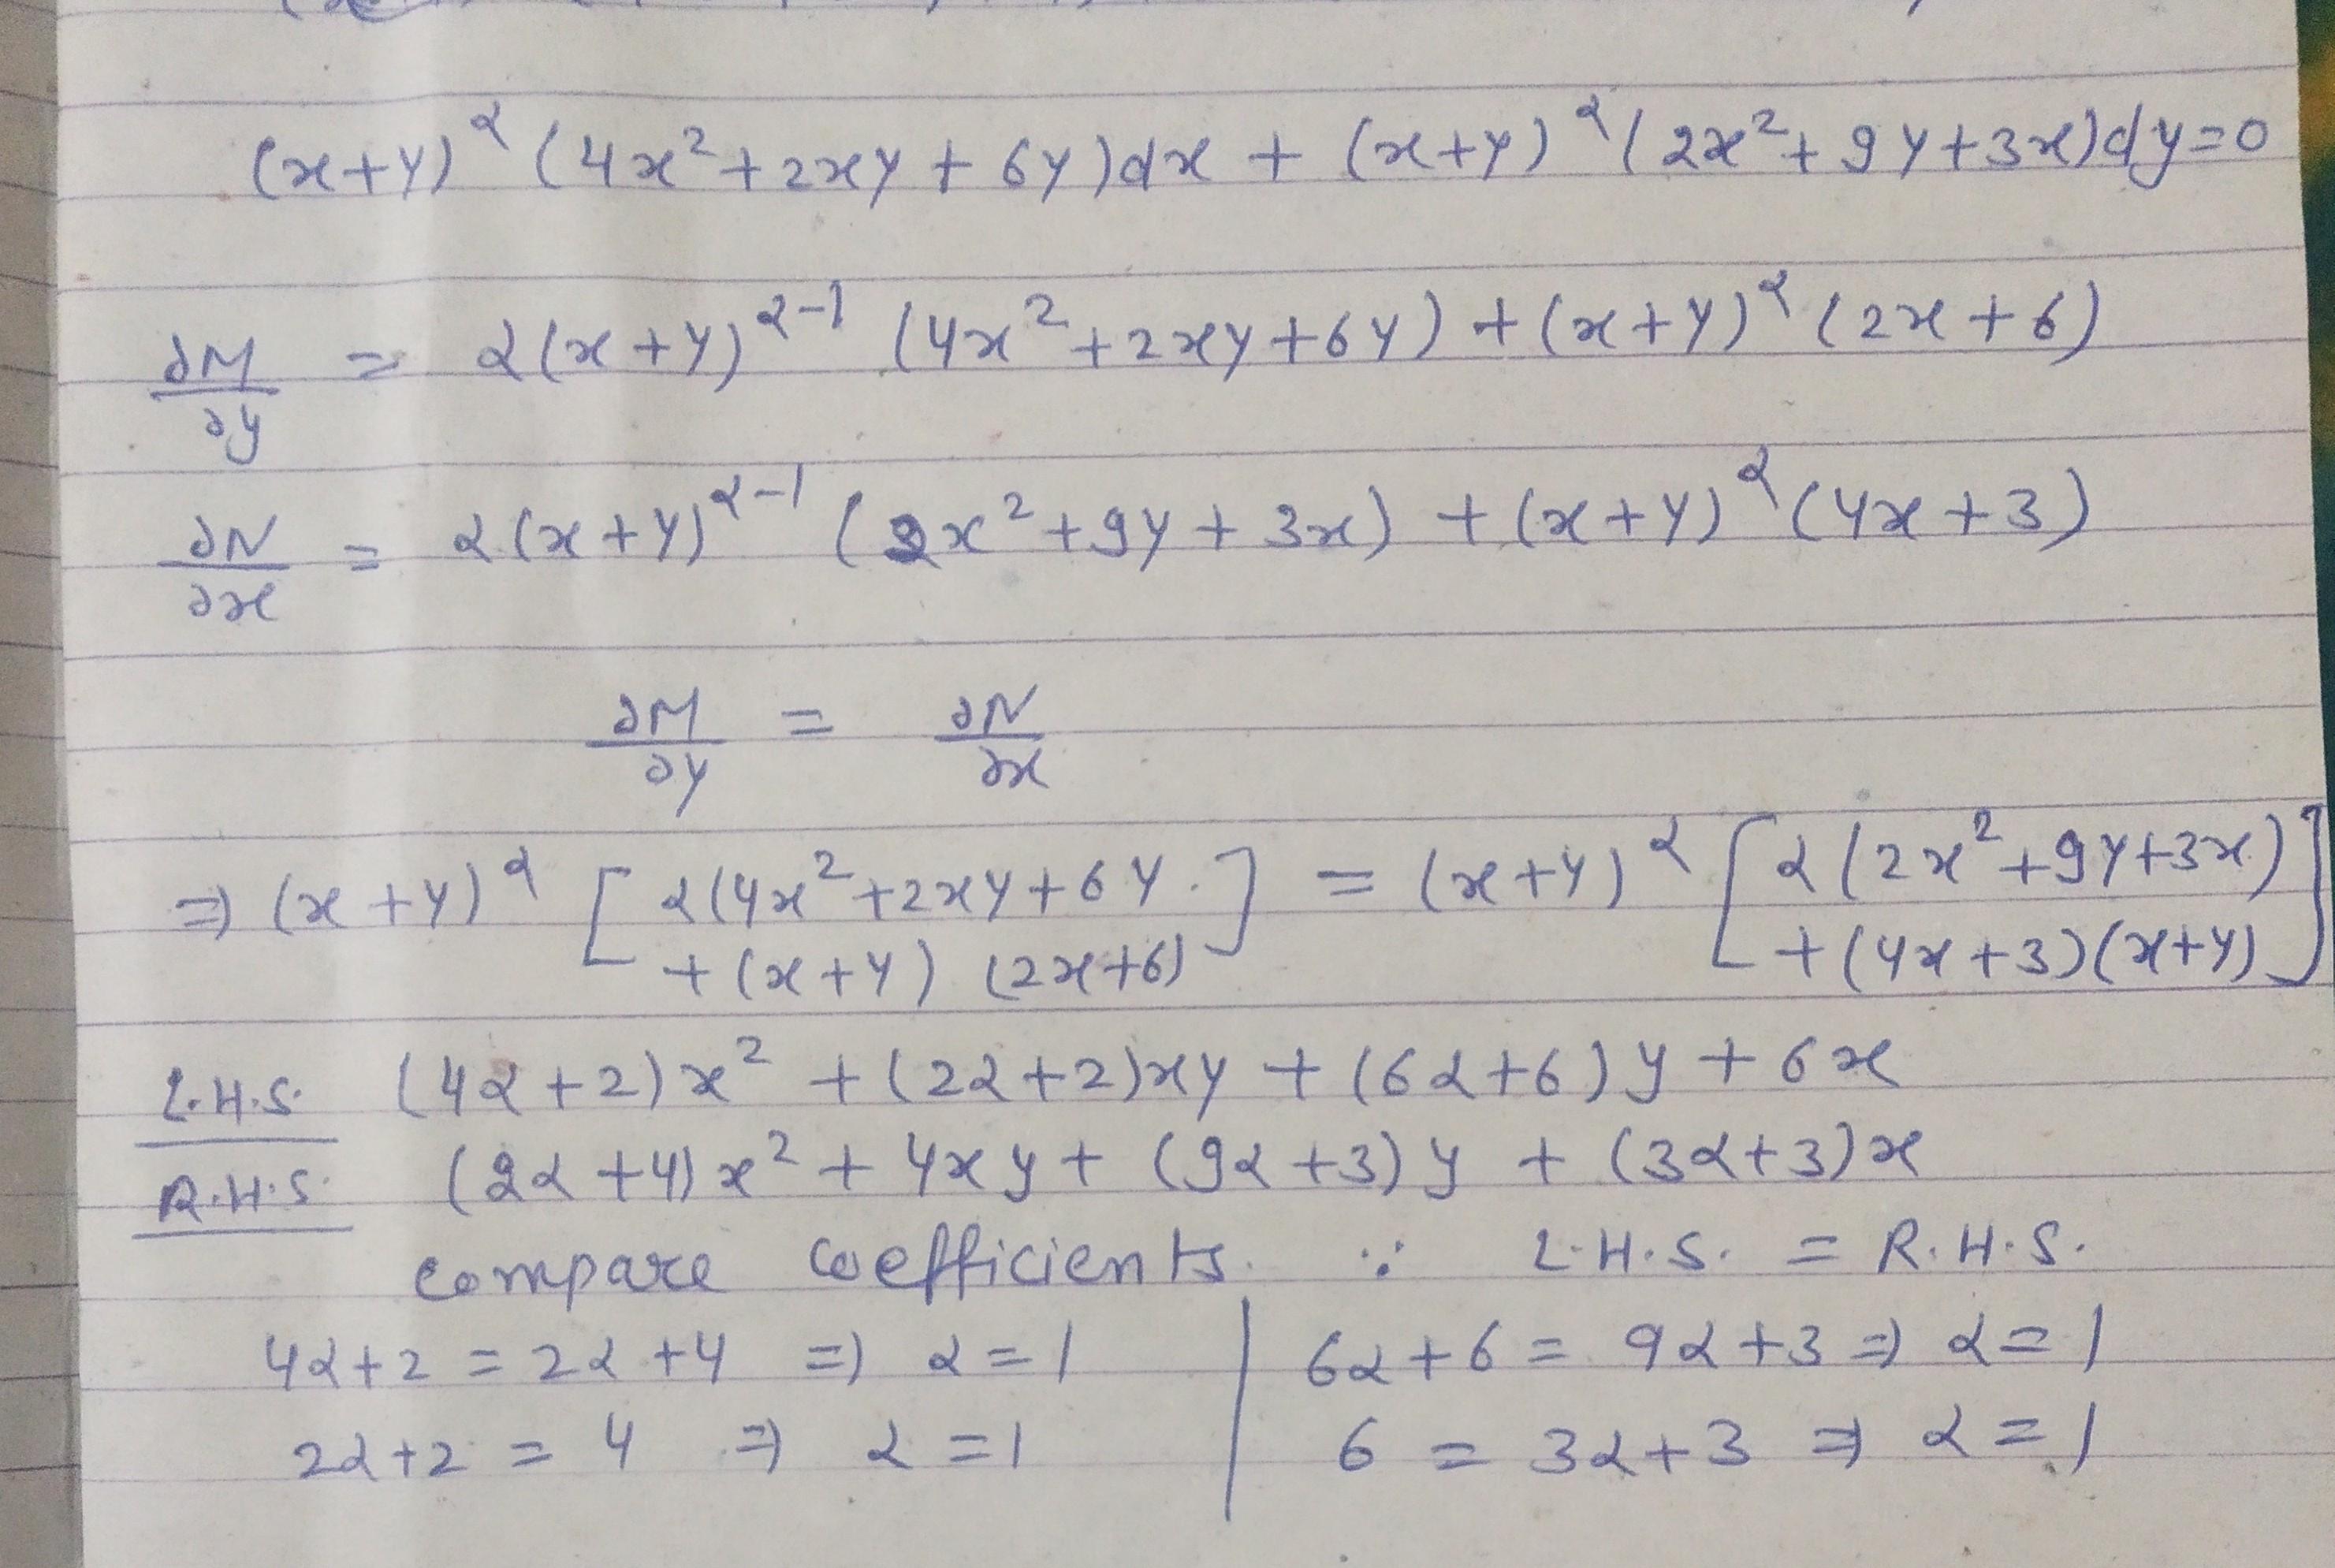 (x+y)^α (4x²+2xy + 6y)dx + (x+y)^α (2x²+9y+3x)dy=0
∂M/∂y = α(x+y)^(α-1) (4x²+2xy+6y) + (x+y)^α (2x+6)
∂N/∂x = α(x+y)^(α-1) (2x²+9y+3x) + (x+y)^α (4x+3)
∂M/∂y = ∂N/∂x
⇒ (x+y)^α [α(4x²+2xy+6y. + (x+y) (2x+6)] = (x+y)^α [α(2x²+9y+3x) + (4x+3)(x+y)]
L.H.S. (4α+2)x² + (2α+2)xy + (6α+6)y + 6x
R.H.S. (2α+4)x² + 4xy + (9α+3)y + (3α+3)x
compare coefficients. ∵ L.H.S. = R.H.S.
4α+2 = 2α+4 ⇒ α=1 | 6α+6 = 9α+3 ⇒ α=1
2α+2 = 4 ⇒ α=1 | 6 = 3α+3 ⇒ α=1